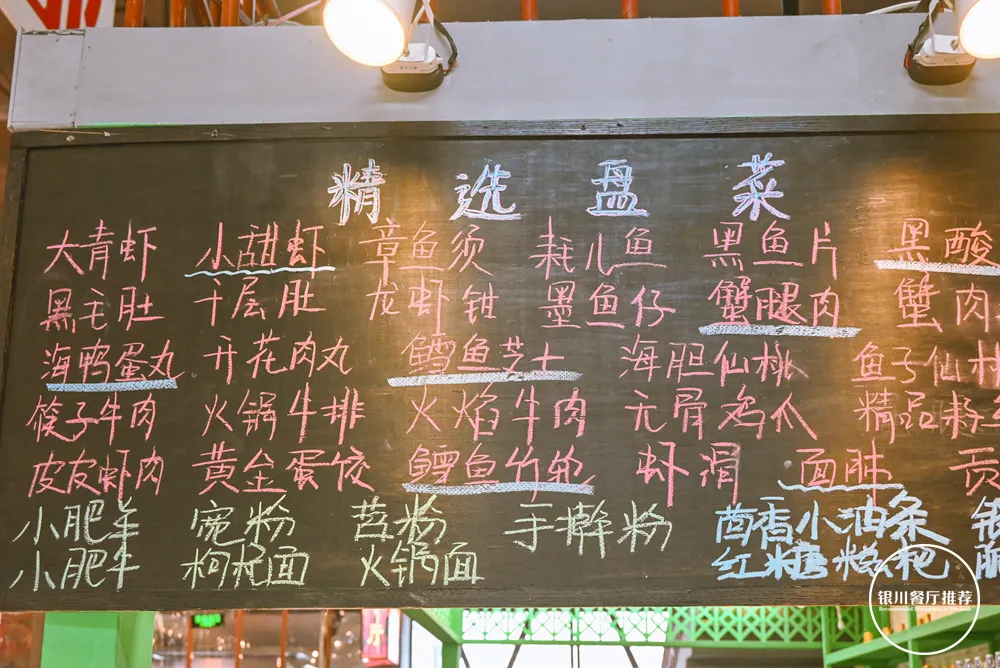 精选盘菜
大青虾 小甜虾 章鱼须 耗儿鱼 黑鱼片 黑酸
黑毛肚 千层肚 龙虾钳 墨鱼仔 蟹腿肉 蟹肉
海鸭蛋丸 开花肉丸 鳕鱼芝士 海胆仙桃 鱼子仙桃
筷子牛肉 火锅牛排 火焰牛肉 无骨鸡爪 精品
皮皮虾肉 黄金蛋饺 鳄鱼竹轮 虾滑 面肚 贡
小肥羊 宽粉 苕粉 手擀粉 茴香小油条
小肥牛 枸杞面 火锅面 红糖糍粑
银川餐厅推荐